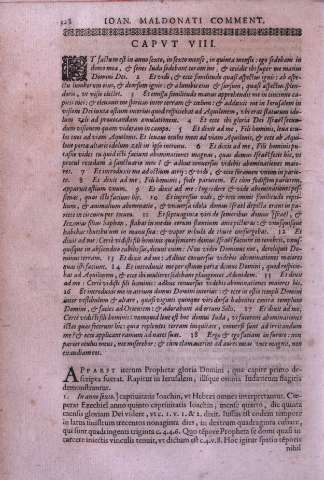 IOAN. MALDONATI COMMENT.
CAPVT VIII.
ET factum est in anno sexto, in sexto mense, in quinta mensis: ego sedebam in
domo mea, & senes Iuda sedebant coram me, & cecidit ibi super me manus
Domini Dei. 2 Et vidi, & ecce similitudo quasi aspectus ignis: ab aspe-
ctu lumborum eius, & deorsum ignis: & a lumbis eius & sursum, quasi aspectus splen-
doris, vt visio electri. 3 Et emissa similitudo manus apprehendit me in cincinno ca-
pitis mei: & eleuauit me spiritus inter terram & cælum: & adduxit me in Ierusalem in
visione Dei iuxta ostium interius quod respiciebat ad Aquilonem, vbi erat statutum ido-
lum zeli ad prouocandam æmulationem. 4 Et ecce ibi gloria Dei Israel secun-
dum visionem quam videram in campo. 5 Et dixit ad me, Fili hominis, leua ocu-
los tuos ad viam Aquilonis. Et leuaui oculos meos ad viam Aquilonis, & ecce ab Aqui-
lone porta altaris idolum zeli in ipso introitu. 6 Et dixit ad me, Fili hominis pu-
tasne vides tu quid isti faciunt abominationes magnas, quas domus Israel facit hic, vt
procul recedam à sanctuario meo? & adhuc conuersus videbis abominationes maio-
res. 7 Et introduxit me ad ostium atrij: & vidi, & ecce foramen vnum in parie-
te. 8 Et dixit ad me, Fili hominis, fode parietem. Et cum fodissem parietem,
apparuit ostium vnum. 9 Et dixit ad me: Ingredere & vide abominationes pes-
simas, quas isti faciunt hîc. 10 Et ingressus vidi, & ecce omnis similitudo repti-
lium, & animalium abominatio, & vniuersa idola domus Israel depicta erant in pa-
riete in circuitu per totum. 11 Et septuaginta viri de senioribus domus Israel, &
habebat thuribulum in manu sua: & vapor nebulæ de thure consurgebat. 12 Et
dixit ad me: Certè vidisti fili hominis quæ seniores domus Israel faciunt in tenebris, vnus-
quisque in abscondito cubiculi sui, dicunt enim: Non videt Dominus nos, dereliquit Do-
minus terram. 13 Et dixit ad me: Adhuc conuersus videbis abominationes maiores
quas isti faciunt. 14 Et introduxit me per ostium portæ domus Domini, quod respicie-
bat ad Aquilonem, & ecce ibi mulieres sedebant plangentes Adonidem. 15 Et dixit
ad me: Certè vidisti fili hominis: adhuc conuersus videbis abominationes maiores
his. 16 Et introduxit me in atrium domus Domini interius: & ecce in ostio templi Domini
inter vestibulum & altare, quasi viginti quinque viri dorsa habentes contra templum
Domini, & facies ad Orientem: & adorabant ad ortum Solis. 17 Et dixit ad me,
Certè vidisti fili hominis: numquid leue est hoc domui Iuda, vt facerent abominationes
istas quas fecerunt hîc: quia replentes terram iniquitate, conuersi sunt ad irritandum
me? & ecce applicant ramum ad nares suas. 18 Ergo & ego faciam in furore: non
parcet oculus meus, nec miserebor: & cum clamauerint ad aures meas voce magna, non
exaudiam eos.
APPARET iterum Prophetæ gloria Domini, quæ capite primo de-
scripta fuerat. Rapitur in Ierusalem, illîque omnia Iudæorum flagitia
demonstrantur.
1. In anno sexto.] captiuitatis Ioachin, vt Hebræi omnes interpretantur. Cœ-
perat Ezechiel anno quinto captiuitatis Ioachin, mense quarto, die quarta
mensis gloriam Dei videre, vt c. 1. v. 1. & 2. dixit. Iussus est eodem tempore
in latus sinistrum trecentos nonaginta dies, in dextrum quadraginta cubare,
qui sunt quadringenti triginta c. 4. 4. 6. Quo tépore Propheta se domi quasi in
carcere iniectis vinculis tenuit, vt dictum est c. 4. v. 8. Hoc igitur spatio téporis
nihil